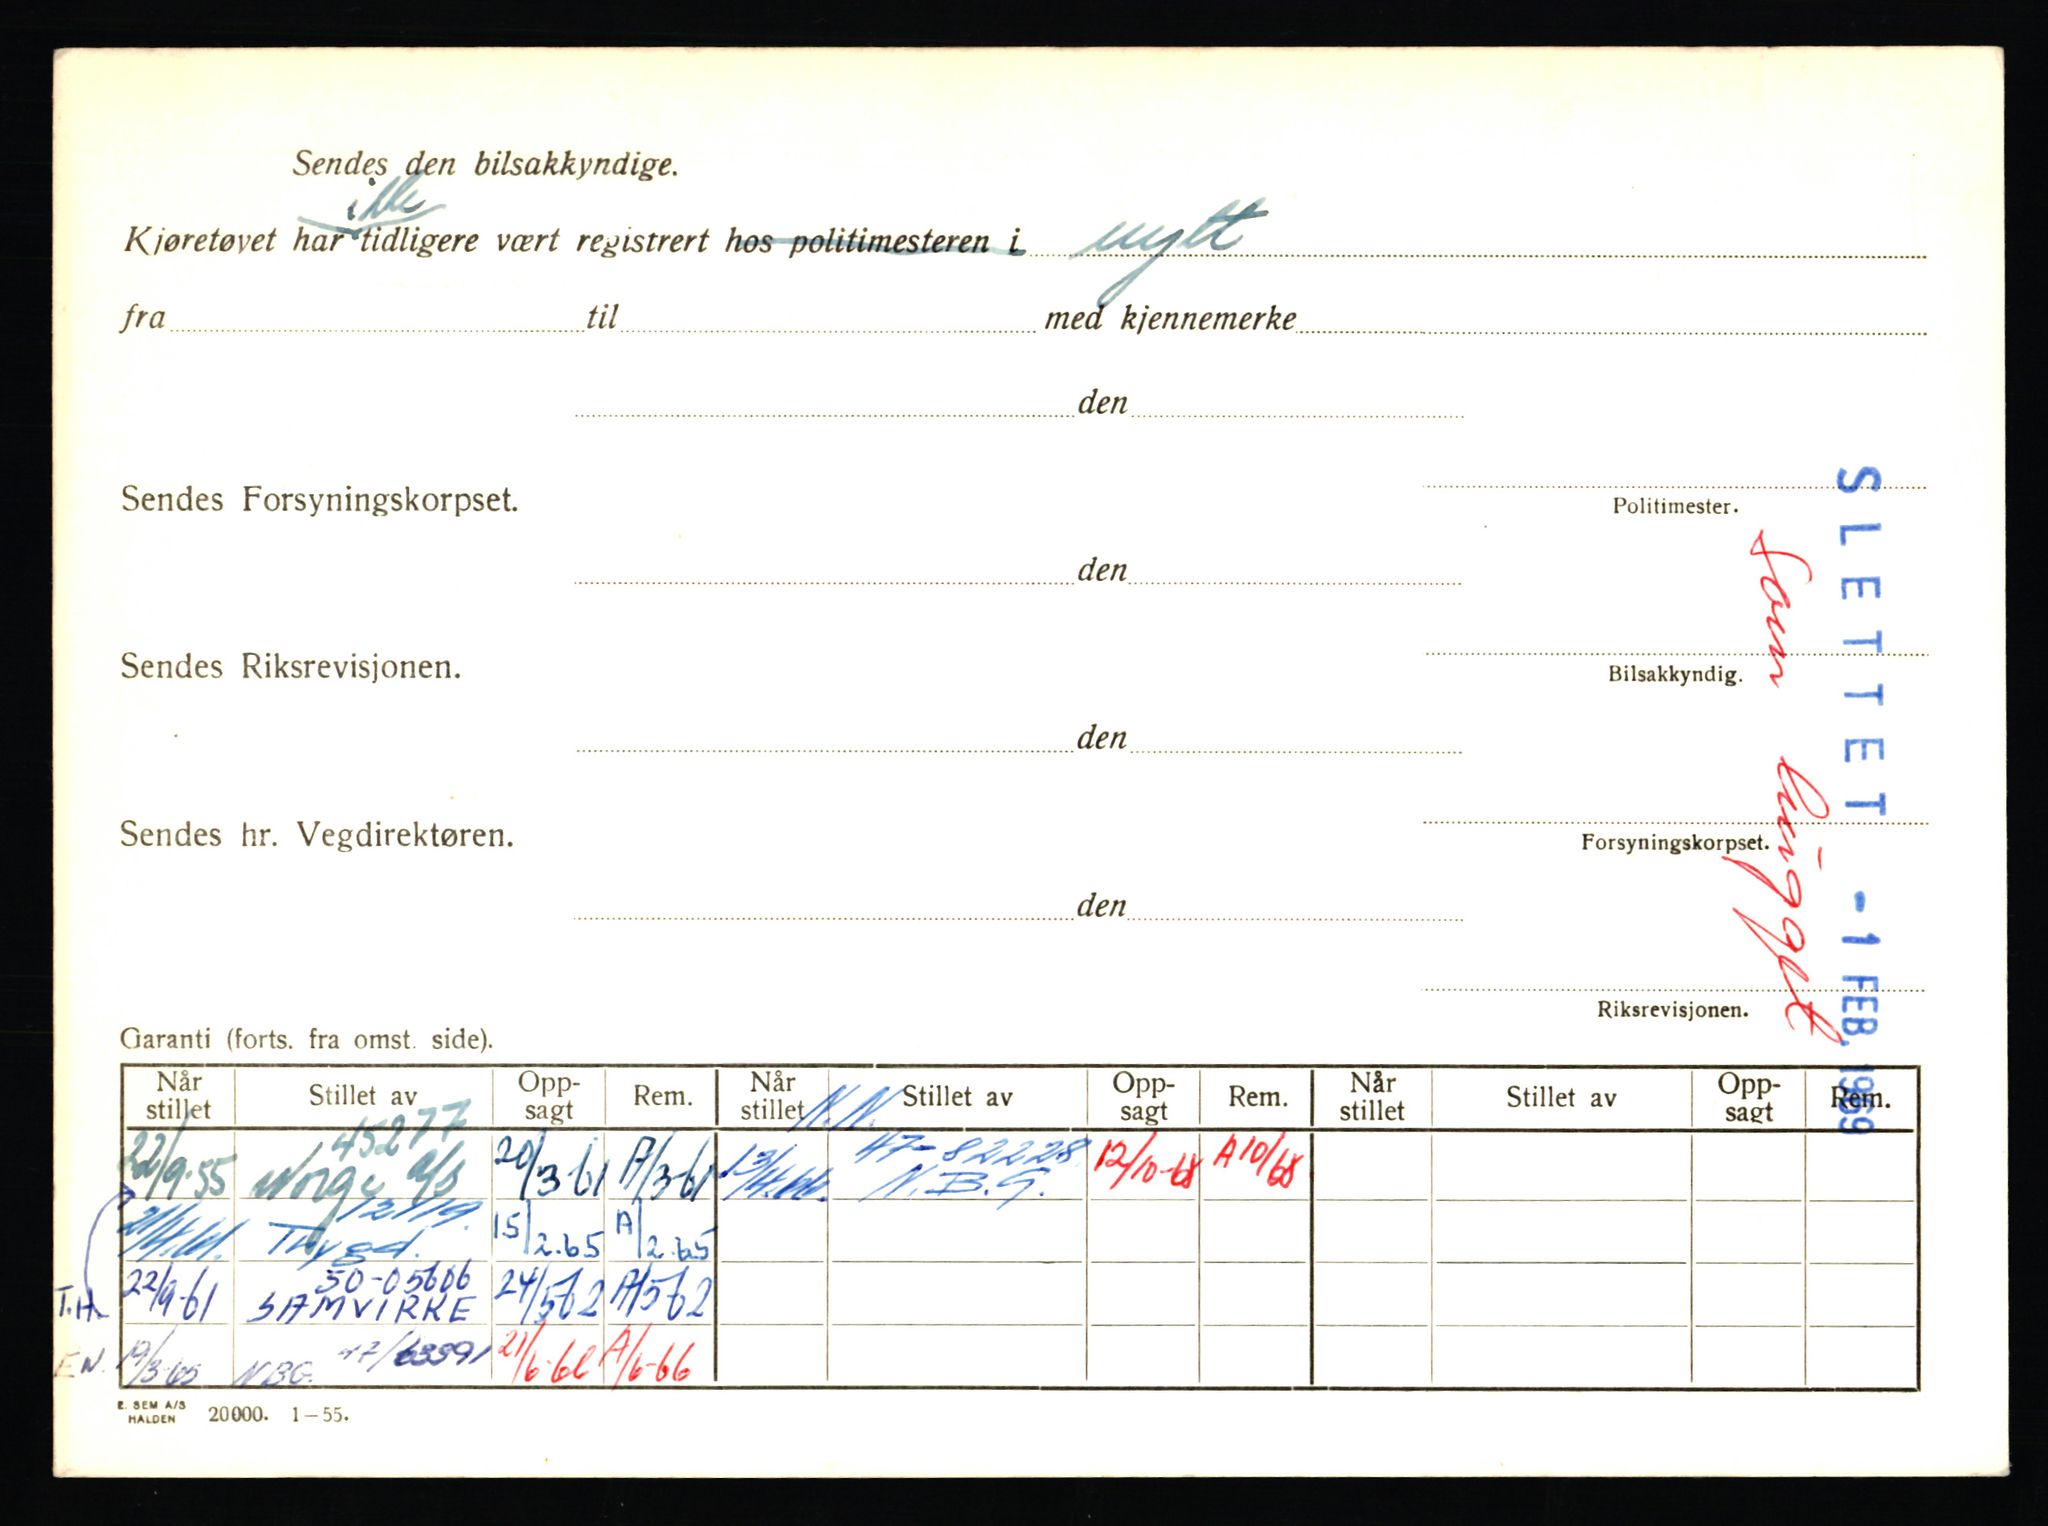 Sendes den bilsakkyndige.
ikke
Kjøretøyet har tidligere vært registrert hos politimesteren i nytt
fra til med kjennemerke
den
Sendes Forsyningskorpset.
Politimester.
den
Sendes Riksrevisjonen.
Bilsakkyndig.
den
Sendes hr. Vegdirektøren.
Forsyningskorpset.
den
Riksrevisjonen.
SLETTET - 1 FEB. 1969
Garanti (forts. fra omst. side).
Når stillet Stillet av Opp-sagt Rem. Når stillet Stillet av Opp-sagt Rem. Når stillet Stillet av Opp-sagt Rem.
45277 N.N.
22/9-55 Norge a/s 20/3-61 A/3-61 13/4.66 47-82228 N.B.G. 12/10-68 A10/68
Trygd. 15/2.65 A/2.65
T.H. 22/9-61 50-05606 SAMVIRKE 24/5 62 A/5 62
E N. 19/3-65 NBG. 47/63391 21/6-66 A/6-66
E. SEM A/S
HALDEN 20000. 1-55.